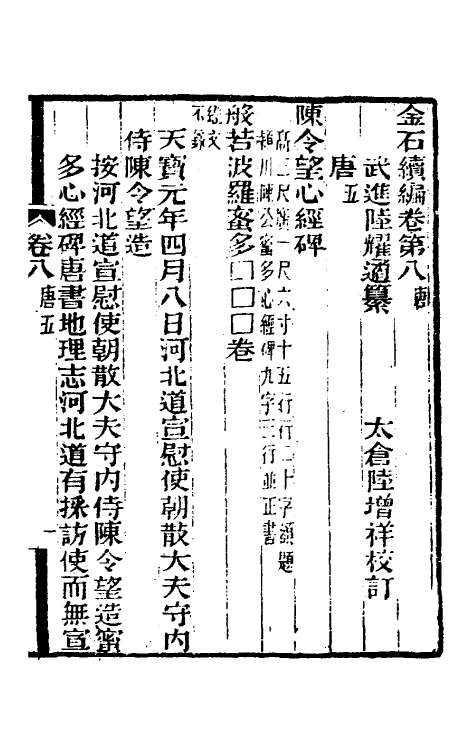 金石續編卷第八
武進陸耀遹纂　太倉陸增祥校訂
唐五
陳令望心經碑
高二尺廣一尺六寸十五行行二十字額題
潁川陳公蜜多心經碑九字三行並正書
般若波羅蜜多□□□卷
經文
不錄
天寶元年四月八日河北道宣慰使朝散大夫守內
侍陳令望造
按河北道宣慰使朝散大夫守內侍陳令望造蜜
多心經碑唐書地理志河北道有採訪使而無宣
卷八　唐五　一